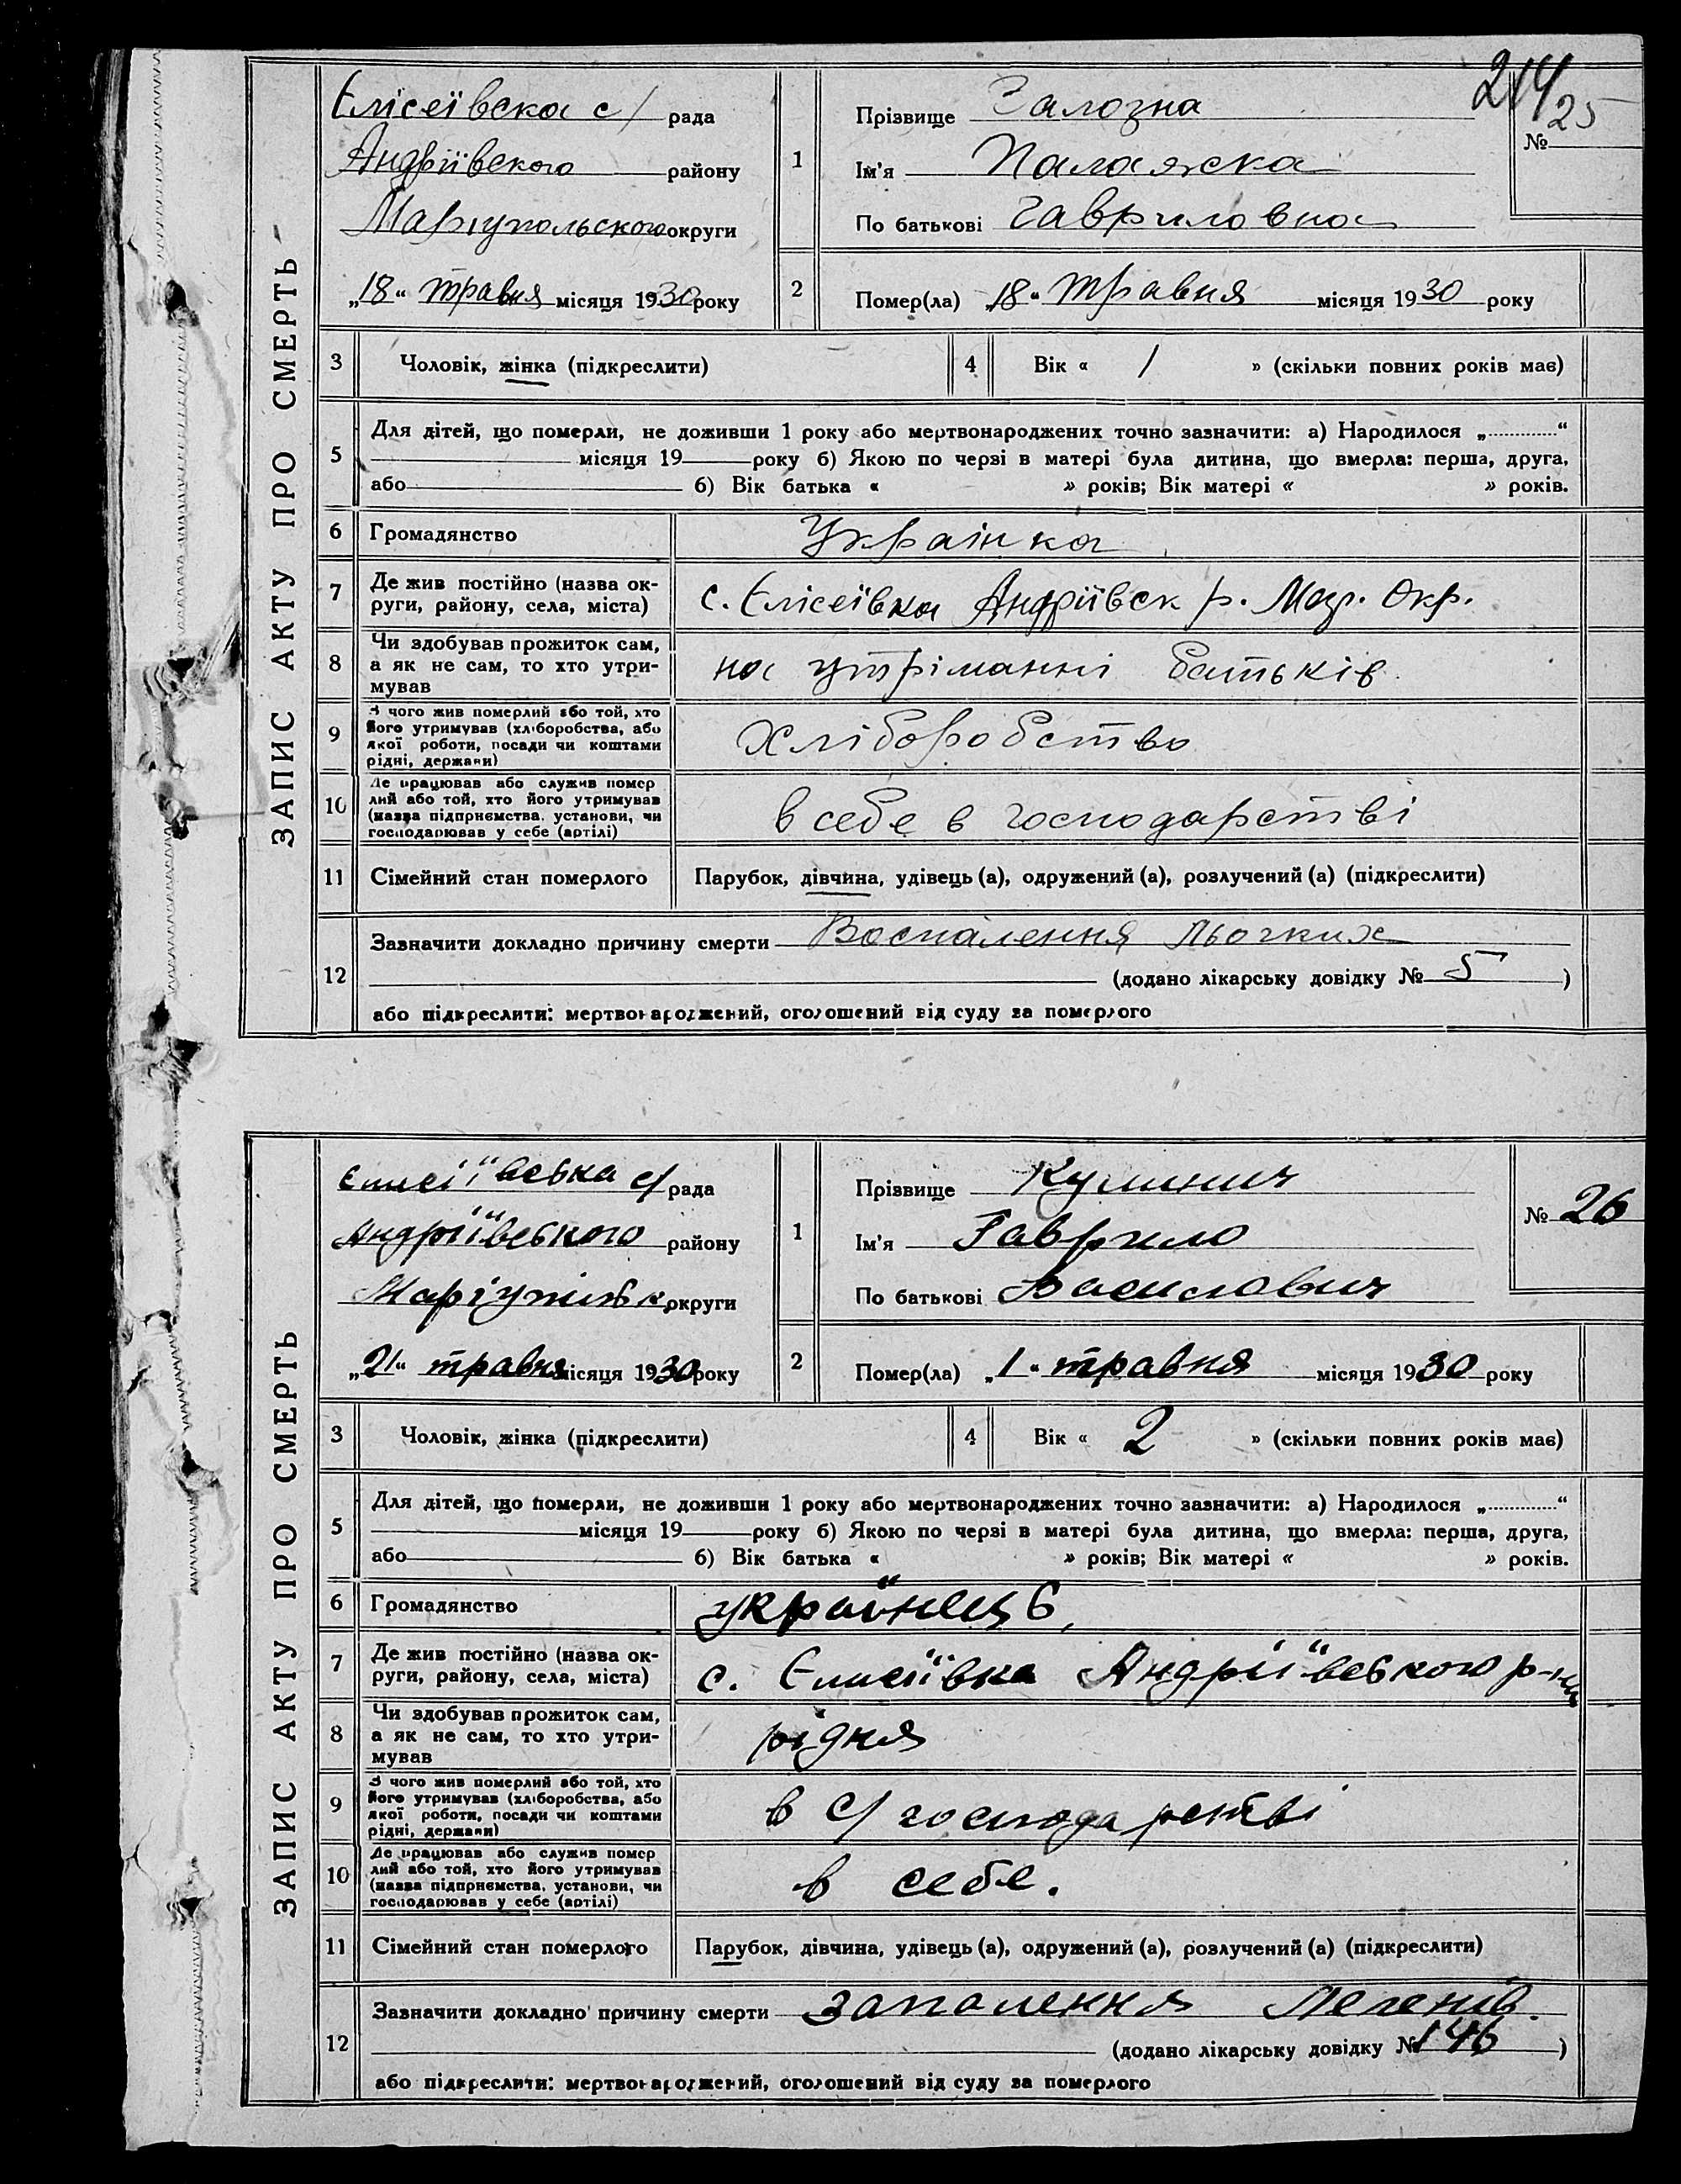 214
ЗАПИС АКТУ ПРО СМЕРТЬ
Єлісеївска с/ рада
Андріївского району
Маріупольского округи
„18“ травня місяця 1930 року
1
Прізвище Залозна
Ім'я Палажска
По батькові Гавриловна
№ 25
2
Помер(ла) „18“ травня місяця 1930 року
3 Чоловік, жінка (підкреслити)
4 Вік « 1 » (скільки повних років має)
5 Для дітей, що померли, не доживши 1 року або мертвонароджених точно зазначити: а) Народилося „............“
місяця 19 року б) Якою по черзі в матері була дитина, що вмерла: перша, друга,
або б) Вік батька « » років; Вік матері « » років.
6 Громадянство Українка
7 Де жив постійно (назва ок-
руги, району, села, міста) с. Єлісеївка Андріївск р. Мар. Окр.
8 Чи здобував прожиток сам,
а як не сам, то хто утри-
мував на утріманні батьків
9 З чого жив померлий або той, хто
його утримував (хліборобства, або
якої роботи, посади чи коштами
рідні, держави) Хліборобство
10 Де працював або служив помер
лий або той, хто його утримував
(назва підприємства, установи, чи
господарював у себе (артілі) в себе в господарстві
11 Сімейний стан померлого Парубок, дівчина, удівець (а), одружений (а), розлучений (а) (підкреслити)
12 Зазначити докладно причину смерти Воспалення Льогких
(додано лікарську довідку № 5 )
або підкреслити: мертвонароджений, оголошений від суду за померлого
ЗАПИС АКТУ ПРО СМЕРТЬ
Єлисеїівська с/ рада
Андріївського району
округи
„21“ травня місяця 1930 року
1
Прізвище Кулинич
Ім'я Гаврило
По батькові Василович
№ 26
2
Помер(ла) „1“ травня місяця 1930 року
3 Чоловік, жінка (підкреслити)
4 Вік « 2 » (скільки повних років має)
5 Для дітей, що померли, не доживши 1 року або мертвонароджених точно зазначити: а) Народилося „............“
місяця 19 року б) Якою по черзі в матері була дитина, що вмерла: перша, друга,
або б) Вік батька « » років; Вік матері « » років.
6 Громадянство українець
7 Де жив постійно (назва ок-
руги, району, села, міста) с. Єлисеївка Андріївського р-ну
8 Чи здобував прожиток сам,
а як не сам, то хто утри-
мував рідня
9 З чого жив померлий або той, хто
його утримував (хліборобства, або
якої роботи, посади чи коштами
рідні, держави) в с/господарстві
10 Де працював або служив помер
лий або той, хто його утримував
(назва підприємства, установи, чи
господарював у себе (артілі) в себе.
11 Сімейний стан померлого Парубок, дівчина, удівець (а), одружений (а), розлучений (а) (підкреслити)
12 Зазначити докладно причину смерти запалення Легенів
(додано лікарську довідку № 146 )
або підкреслити: мертвонароджений, оголошений від суду за померлого